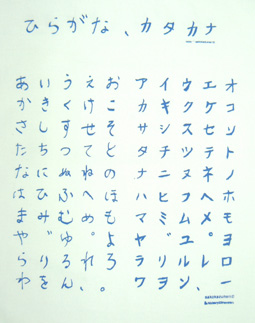 ひらがな、カタカナ
あいうえお アイウエオ
かきくけこ カキクケコ
さしすせそ サシスセソ
たちつてと タチツテト
なにぬねの ナニヌネノ
はひふへほ ハヒフヘホ
まみむめも マミムメモ
や゛ゆ゜よ ヤ゛ユ゜ヨ
らりるれろ ラリルレロ
わをん、。 ワヲン、ー